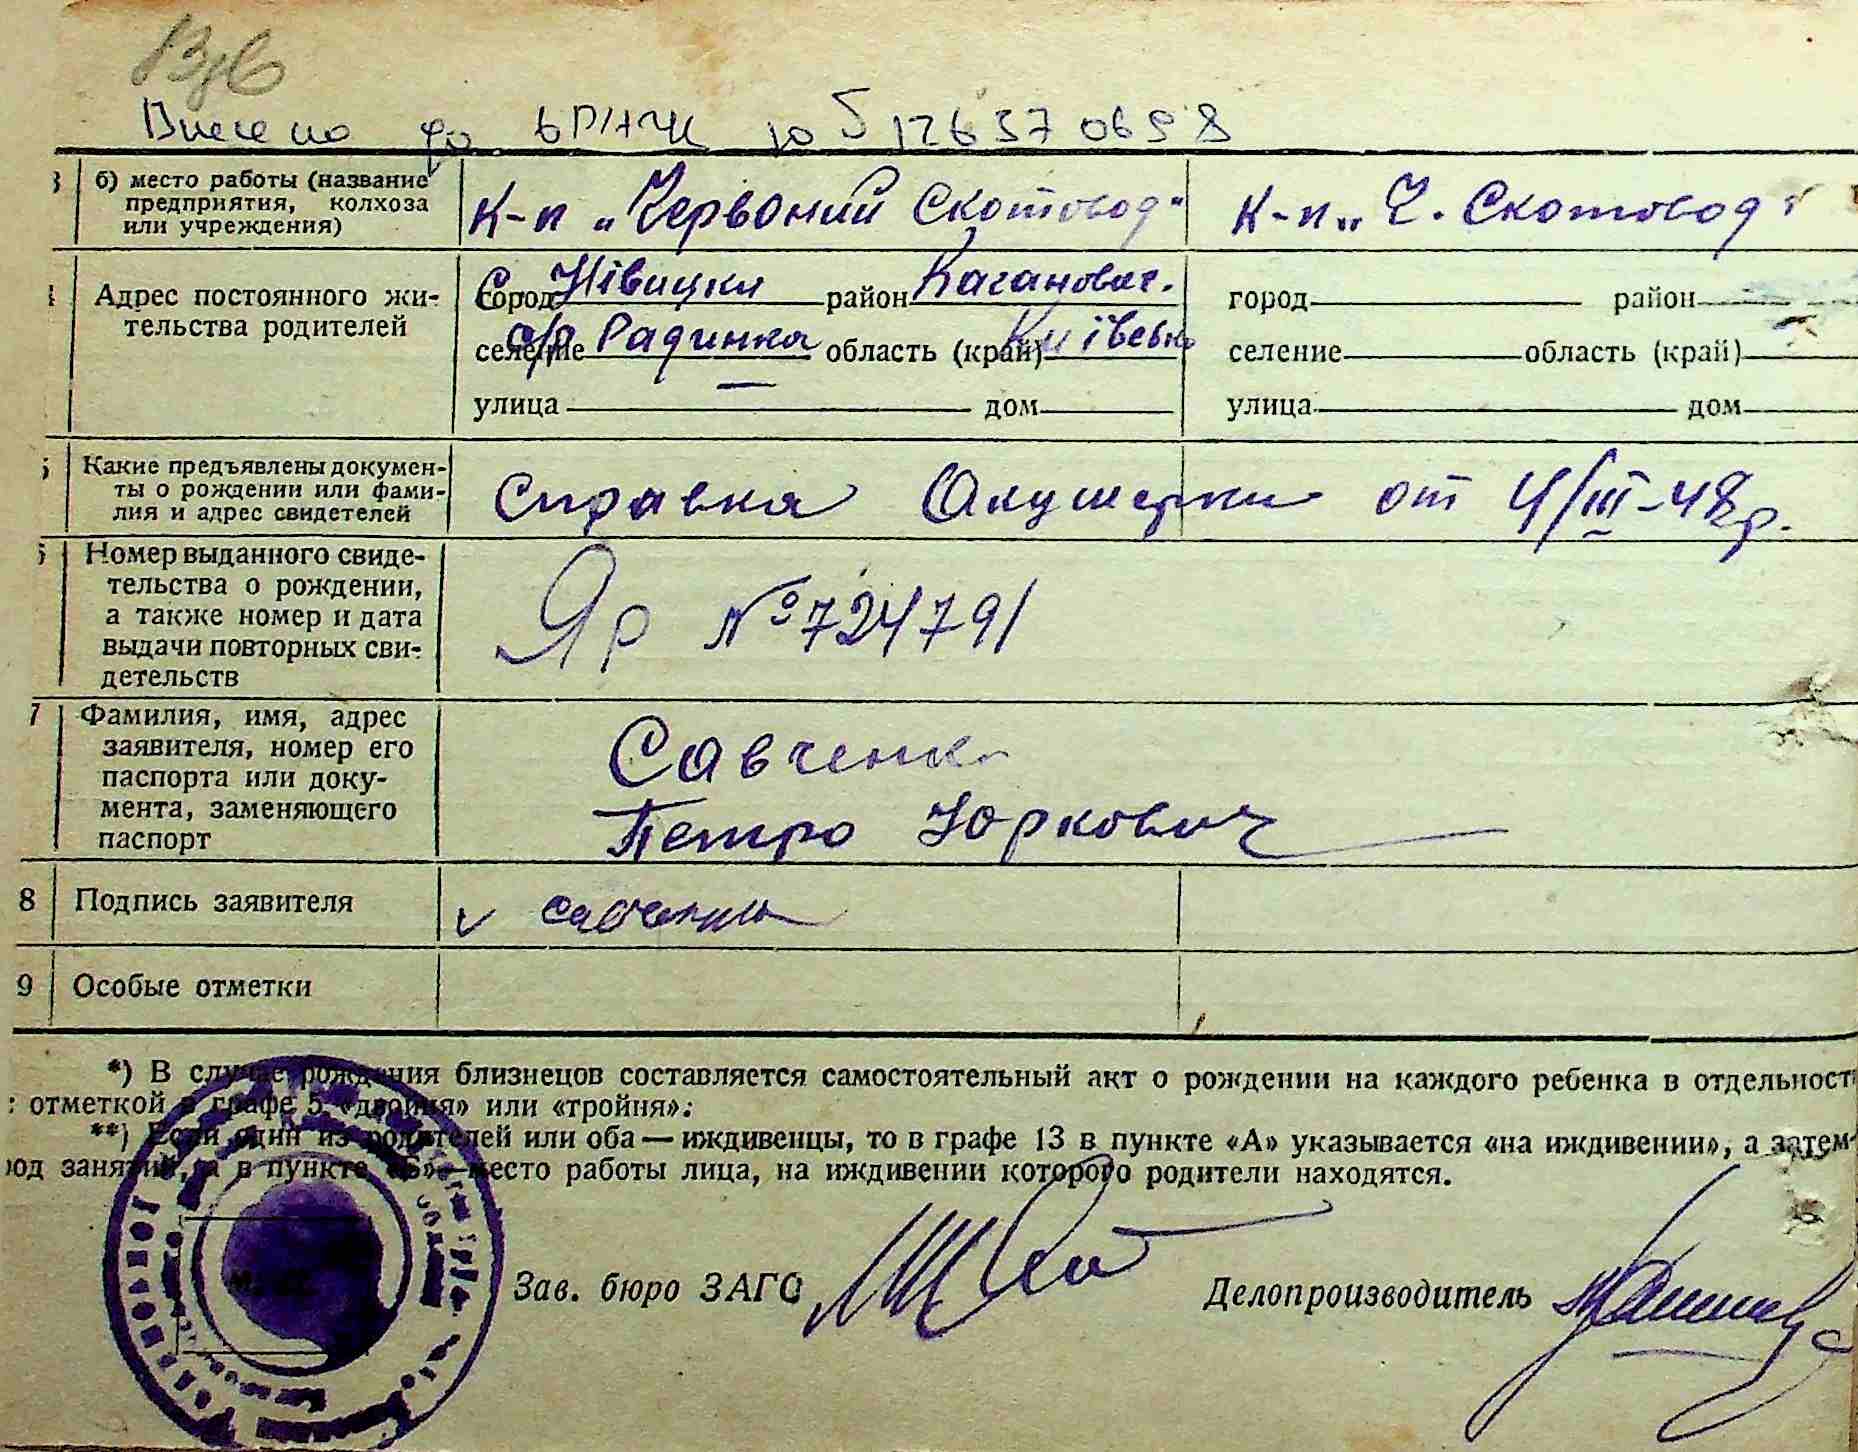 Внесено до
б) место работы (название предприятия, колхоза или учреждения)
К-п „Червоний Скотовод"
К-п „Ч. Скотовод"
Адрес постоянного жительства родителей
город С. Нівицки район Каганович.
селение с/р Радинка область (край) Київськ
улица дом
город район
селение область (край)
улица дом
Какие предъявлены докумен-
ты о рождении или фами-
лия и адрес свидетелей
Справка Акушерки от 4/III-48р.
Номер выданного свиде-
тельства о рождении,
а также номер и дата
выдачи повторных сви-
детельств
Яр № 724791
7 Фамилия, имя, адрес
заявителя, номер его
паспорта или доку-
мента, заменяющего
паспорт
Савченко
Петро Юркович
8 Подпись заявителя
9 Особые отметки
*) В случае рождения близнецов составляется самостоятельный акт о рождении на каждого ребенка в отдельност
: отметкой в графе 5 «двойня» или «тройня»:
**) Если один из родителей или оба — иждивенцы, то в графе 13 в пункте «А» указывается «на иждивении», а затем
род занятий, а в пункте «Б» место работы лица, на иждивении которого родители находятся.
Зав. бюро ЗАГС
Делопроизводитель